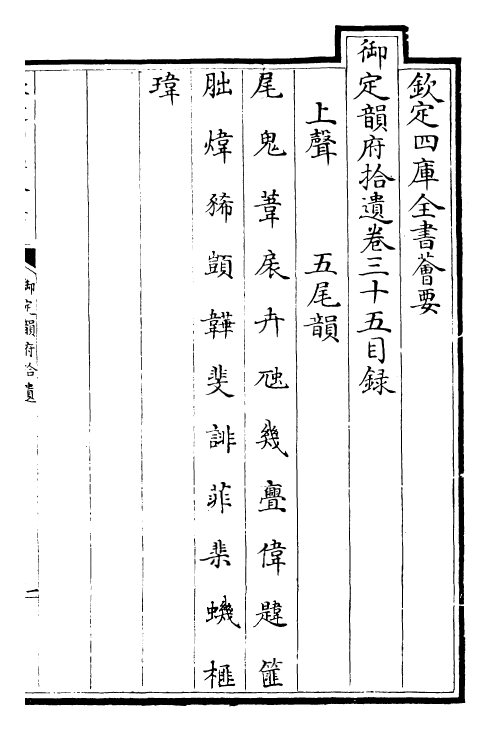 欽定四庫全書薈要
御定韻府拾遺卷三十五目録
上聲 五尾韻
尾 鬼 葦 扆 卉 虺 幾 亹 偉 韙 篚
朏 煒 豨 顗 韡 斐 誹 菲 棐 蟣 榧
瑋
御定韻府拾遺